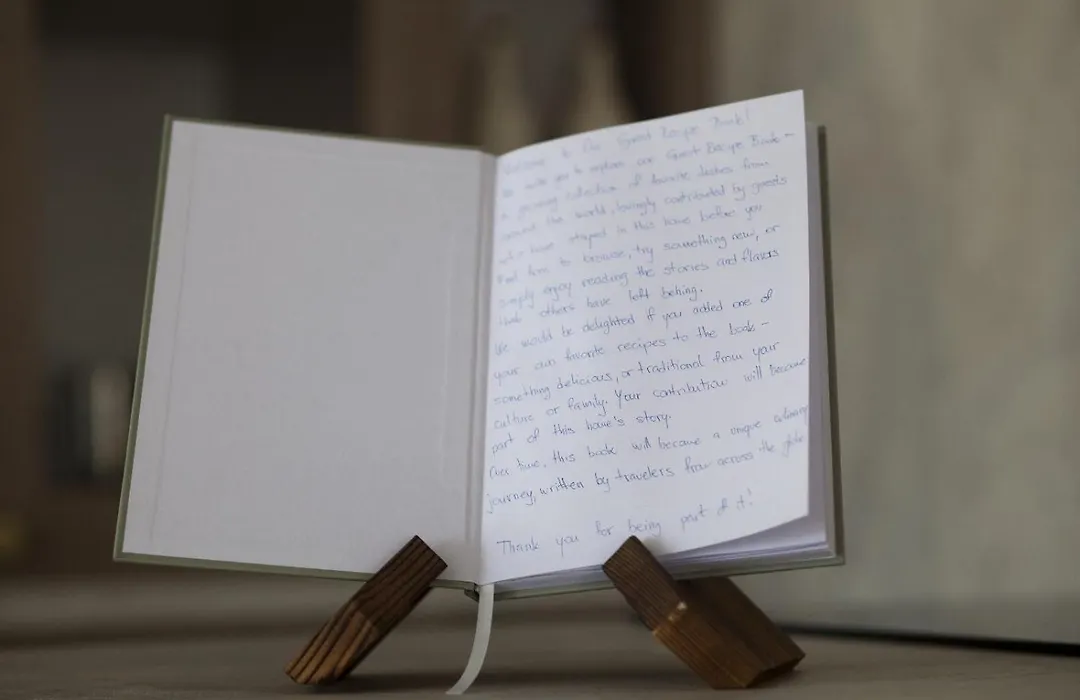 Welcome to Our Guest Recipe Book!
We invite you to explore our Guest Recipe Book -
a growing collection of favorite dishes from
around the world, lovingly contributed by guests
who have stayed in this home before you
Feel free to browse, try something new, or
simply enjoy reading the stories and flavors
that others have left behing.
We would be delighted if you added one of
your own favorite recipes to the book -
something delicious, or traditional from your
culture or family. Your contribution will become
part of this home's story.
Over time, this book will become a unique culinary
journey, written by travelers from across the globe
Thank you for being part of it!